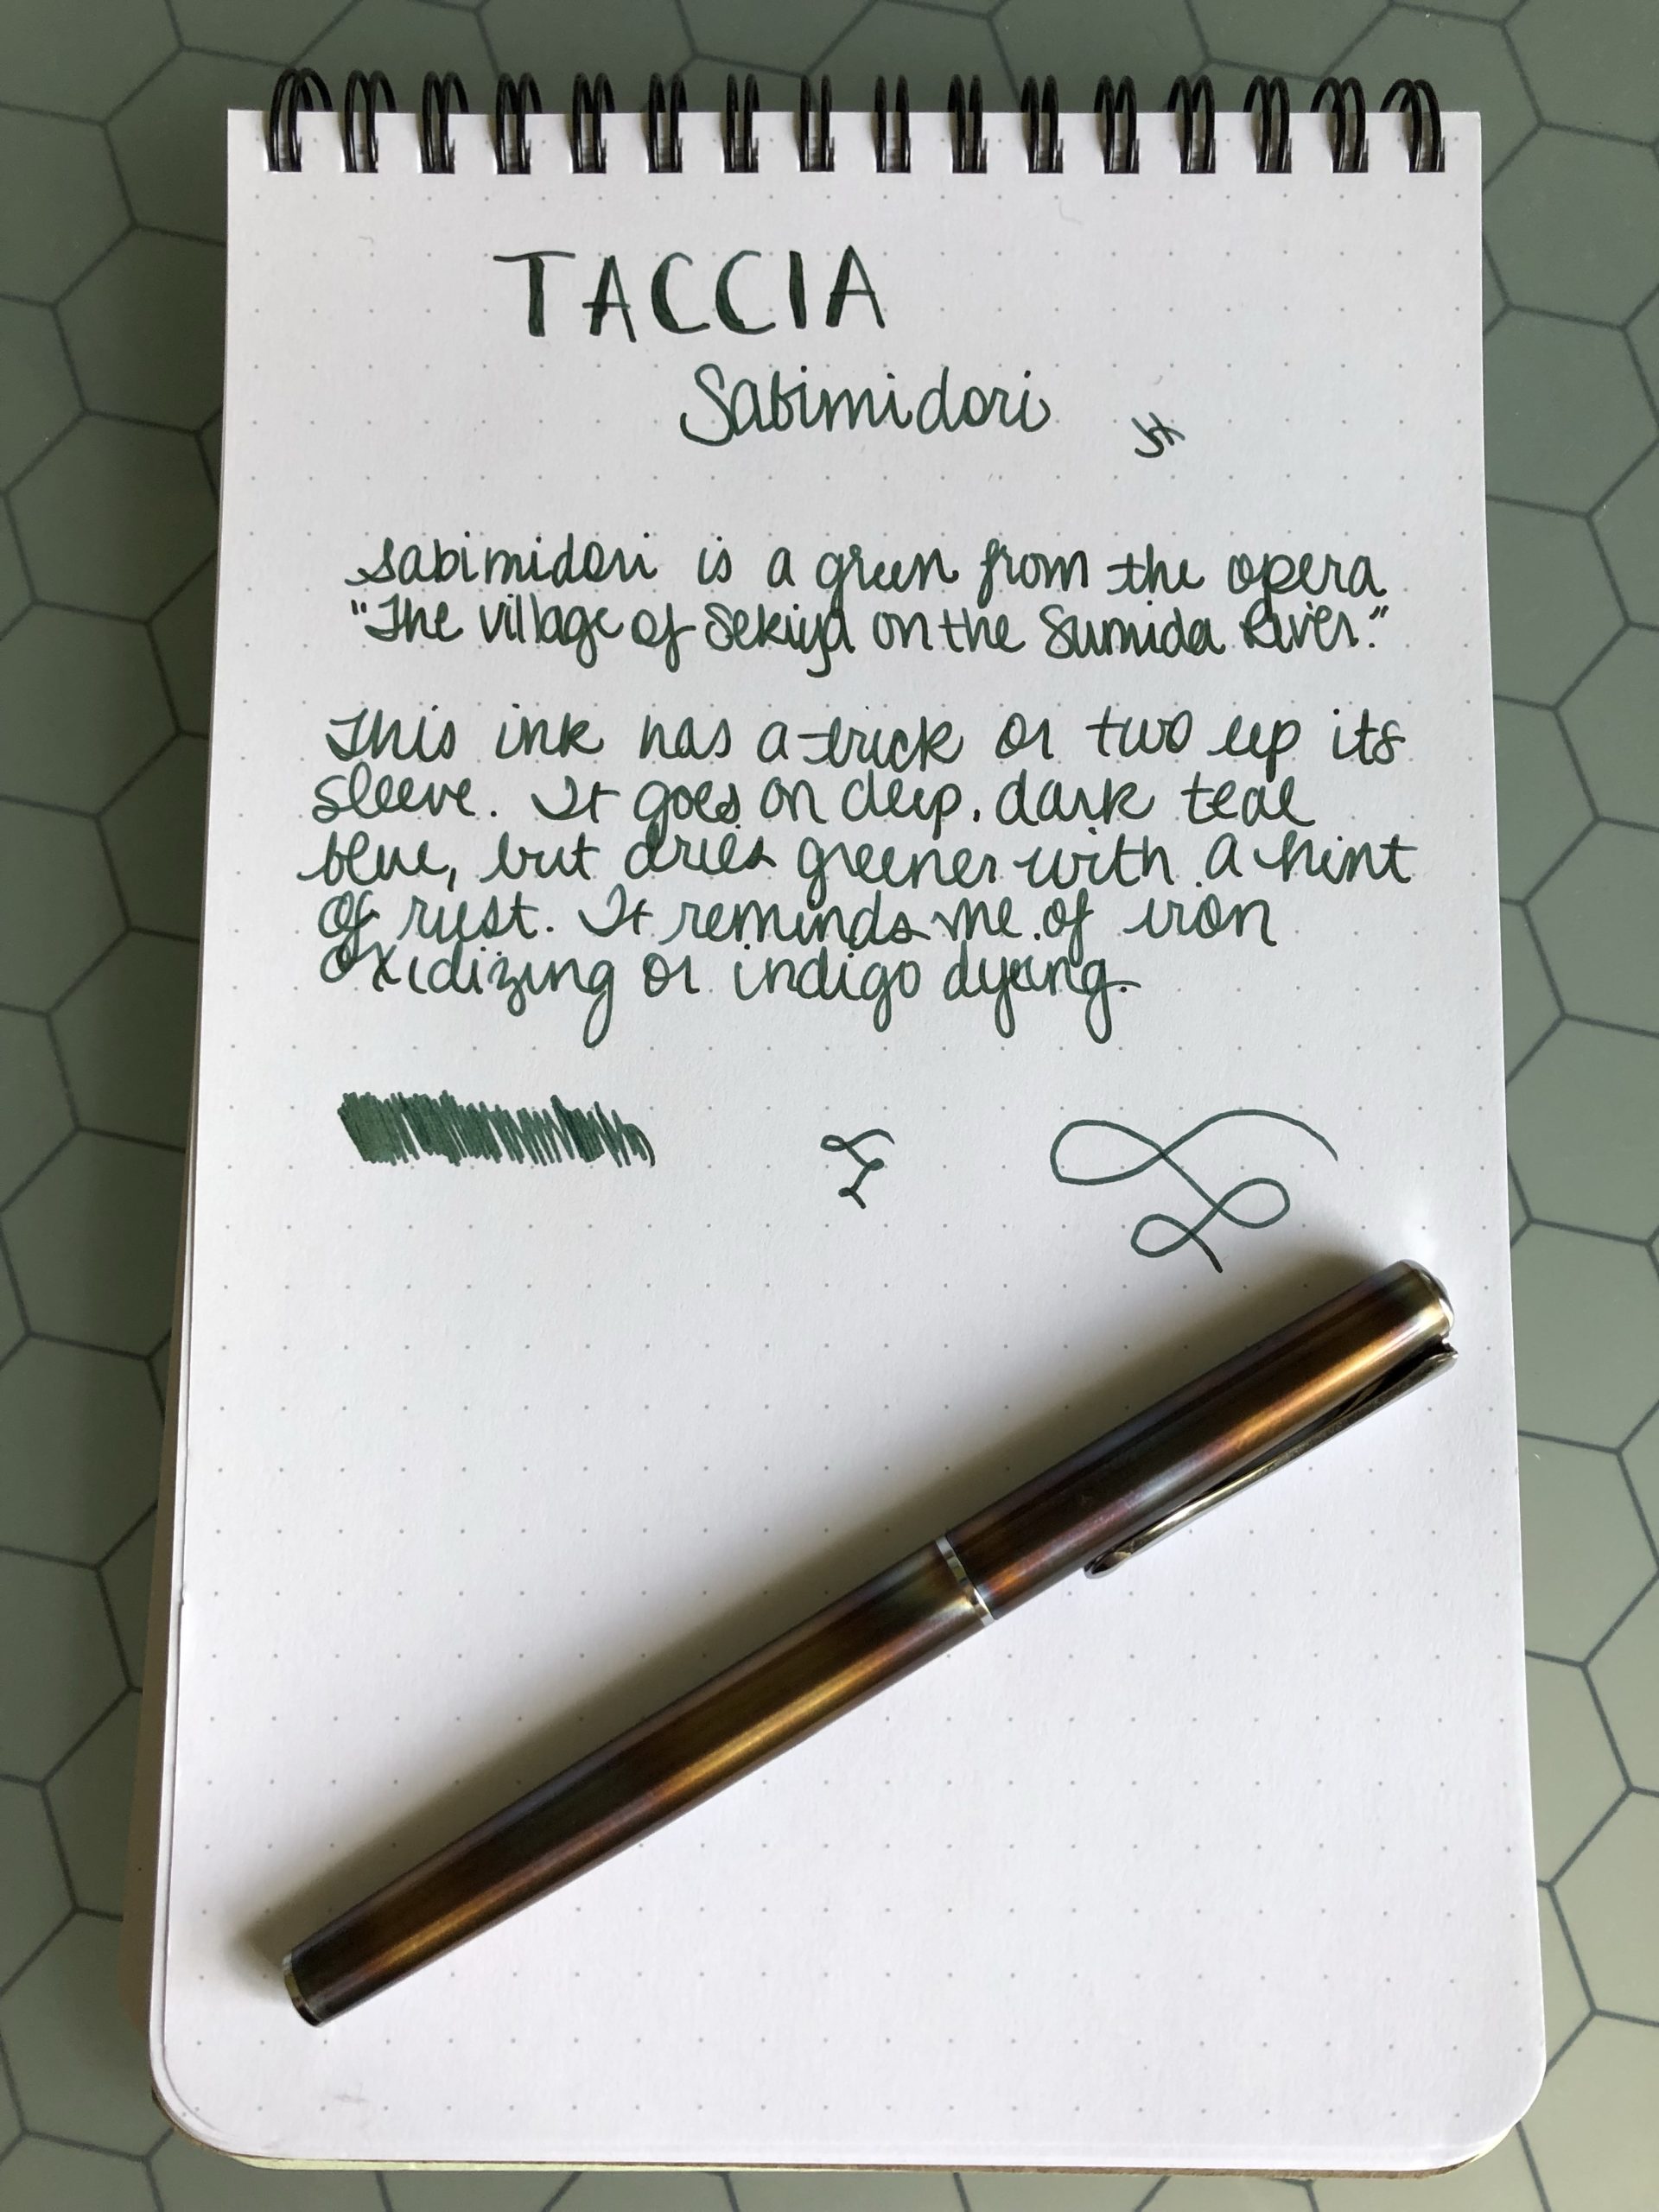 TACCIA
Sabimidori
Sabimidori is a green from the opera
"The Village of Sekiya on the Sumida River."
This ink has a trick or two up its
sleeve. It goes on deep, dark teal
blue, but dries greener with a hint
of rust. It reminds me of iron
oxidizing or indigo dyeing.